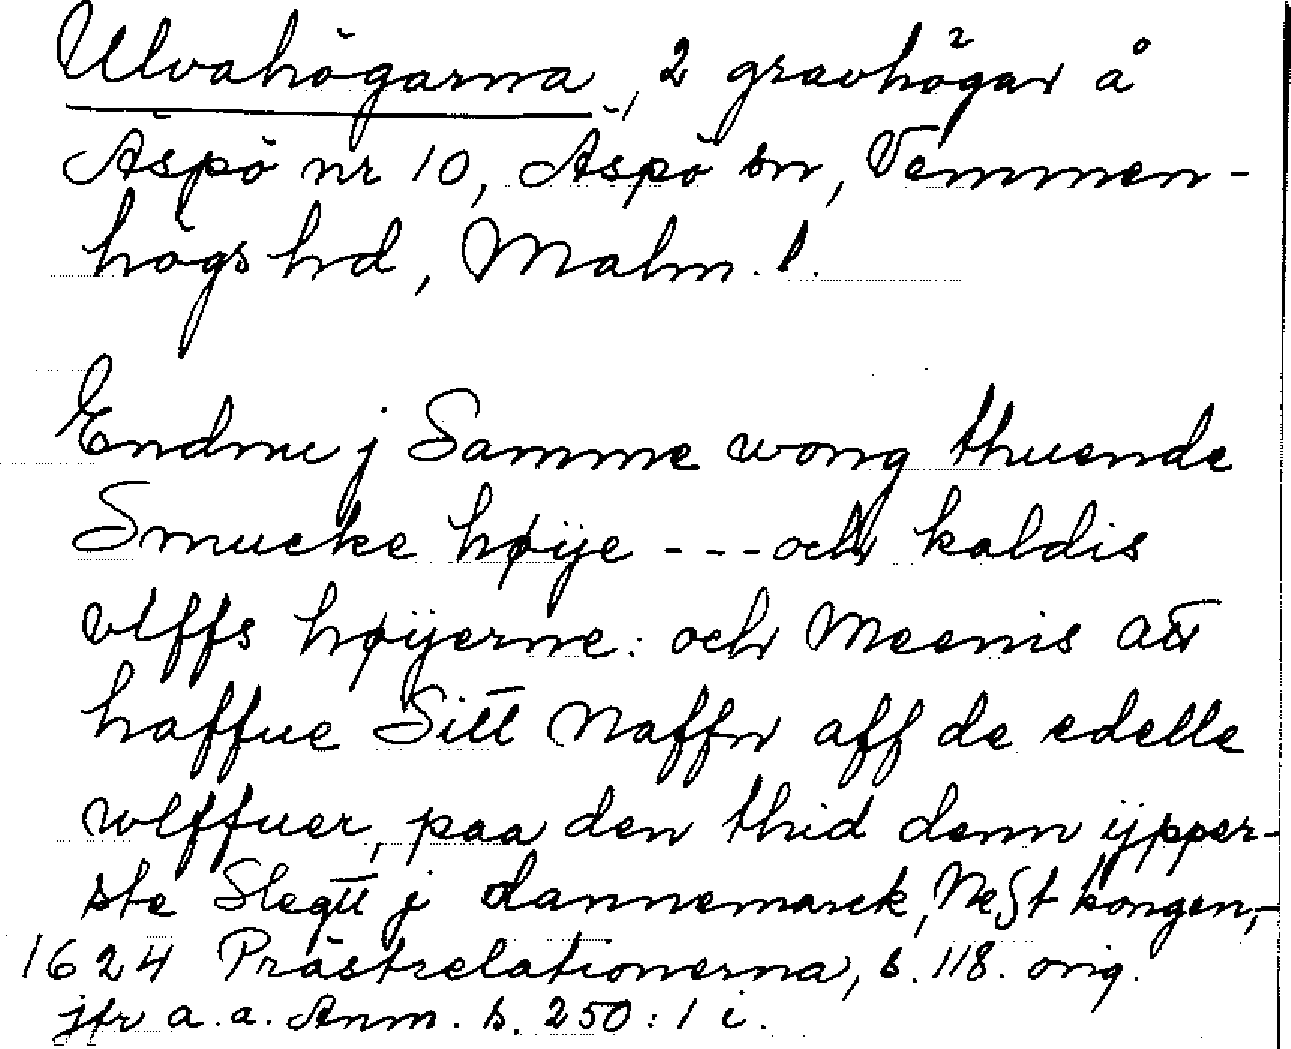 Ulvahögarna, 2 gravhögar å
Äspö nr 10, Äspö sn, Vemmen-
högs hrd, Malm. l.
Endnu j Samme wong thuende
Smucke høije --- och kaldis
vlffs høijerne: och Meenis att
haffue Sitt Naffn aff de edelle
wlffuer, paa den thid denn ijpper-
ste Slegtt j dannemarck, NeSt kongen,-
1624 Prästrelationerna, s. 118. orig.
jfr a. a. Anm. s. 250:1 i.